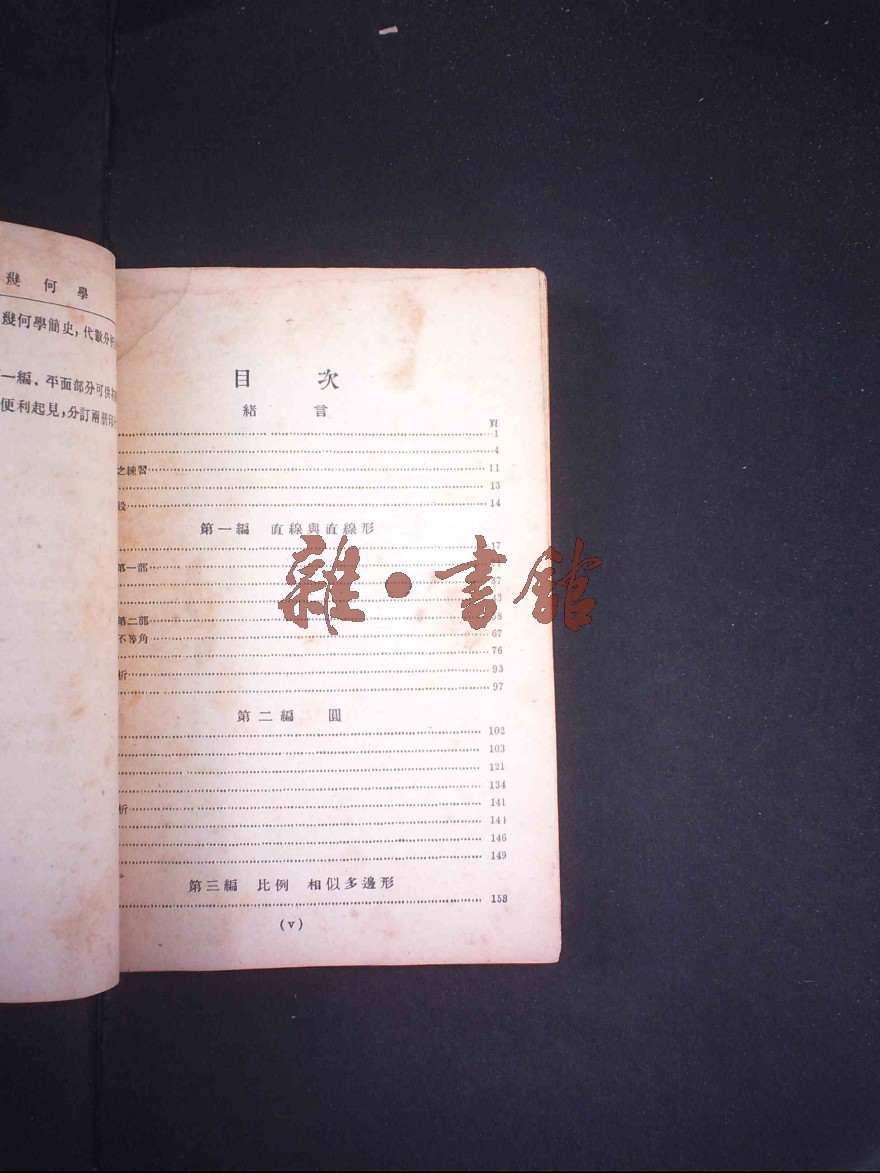 幾何學
幾何學簡史，代數分析
一編．平面部分可供
便利起見，分訂兩册
目次
緒言
頁
1
4
之練習 11
13
14
第一編 直線與直線形
17
第一部
37
第二部
不等角 67
76
析 93
97
第二編 圓
102
103
121
134
析 141
144
146
149
第三編 比例 相似多邊形
158
(v)
雜·書館